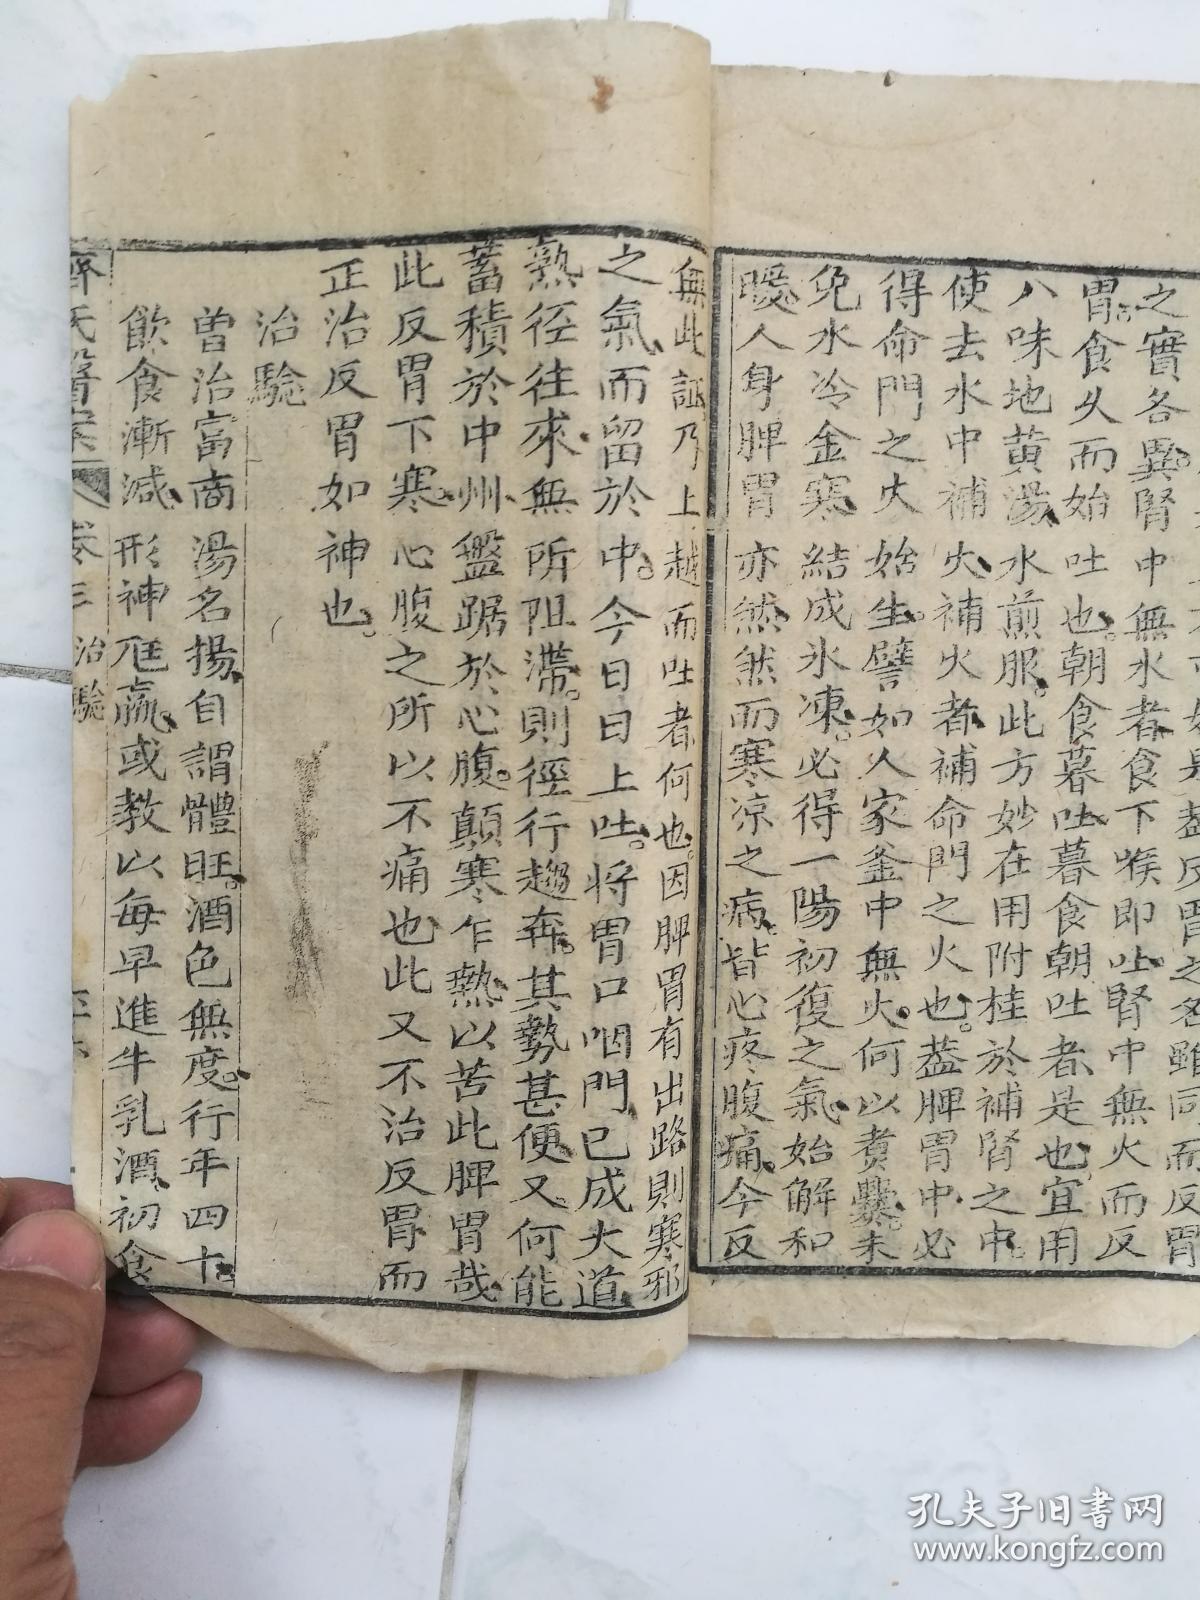 如是蓋反胃之名雖同而反胃
之實各異腎中無水者食下喉即吐腎中無火而反
胃食久而始吐也朝食暮吐暮食朝吐者是也宜用
八味地黄湯水煎服此方妙在用附桂於補腎之中
使去水中補火補火者補命門之火也蓋脾胃中必
得命門之火始生譬如人家釜中無火何以煑爨未
免水冷金寒結成氷凍必得一陽初復之氣始解和
暖人身脾胃亦然然而寒凉之病皆心疼腹痛今反
無此証乃上越而吐者何也因脾胃有出路則寒邪
之氣而留於中今日日上吐將胃口咽門已成大道
熟徑往來無所阻滯則徑行趨奔其勢甚便又何能
蓄積於中州盤踞於心腹顛寒乍熱以苦此脾胃哉
此反胃下寒心腹之所以不痛也此又不治反胃而
正治反胃如神也
治驗
曽治富商湯名揚自謂體旺酒色無度行年四十
飲食漸減形神尪羸或教以每早進牛乳酒初食
齊氏醫案 卷三 治驗
孔夫子旧书网
www.kongfz.com